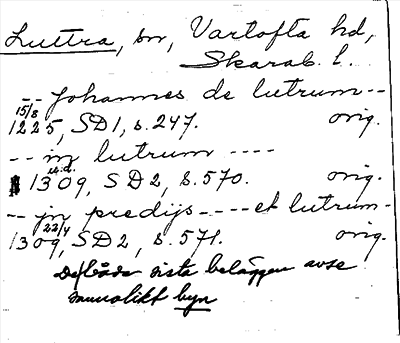 Luttra, sn, Vartofta hd,
Skarab. l.
-- Johannes de lutrum --
15/8
1225, SD1, s. 247. orig.
-- in lutrum ----
u.d.
1309, SD2, s. 570. orig.
-- jn predijs ---- et lutrum-
22/4
1309, SD2, s. 571. orig.
De båda sista beläggen avse
sannolikt byn